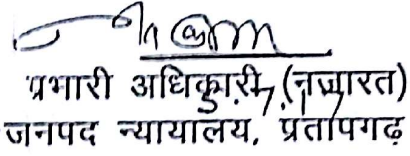 प्रभारी अधिकारी, (नजारत)
जनपद न्यायालय, प्रतापगढ़